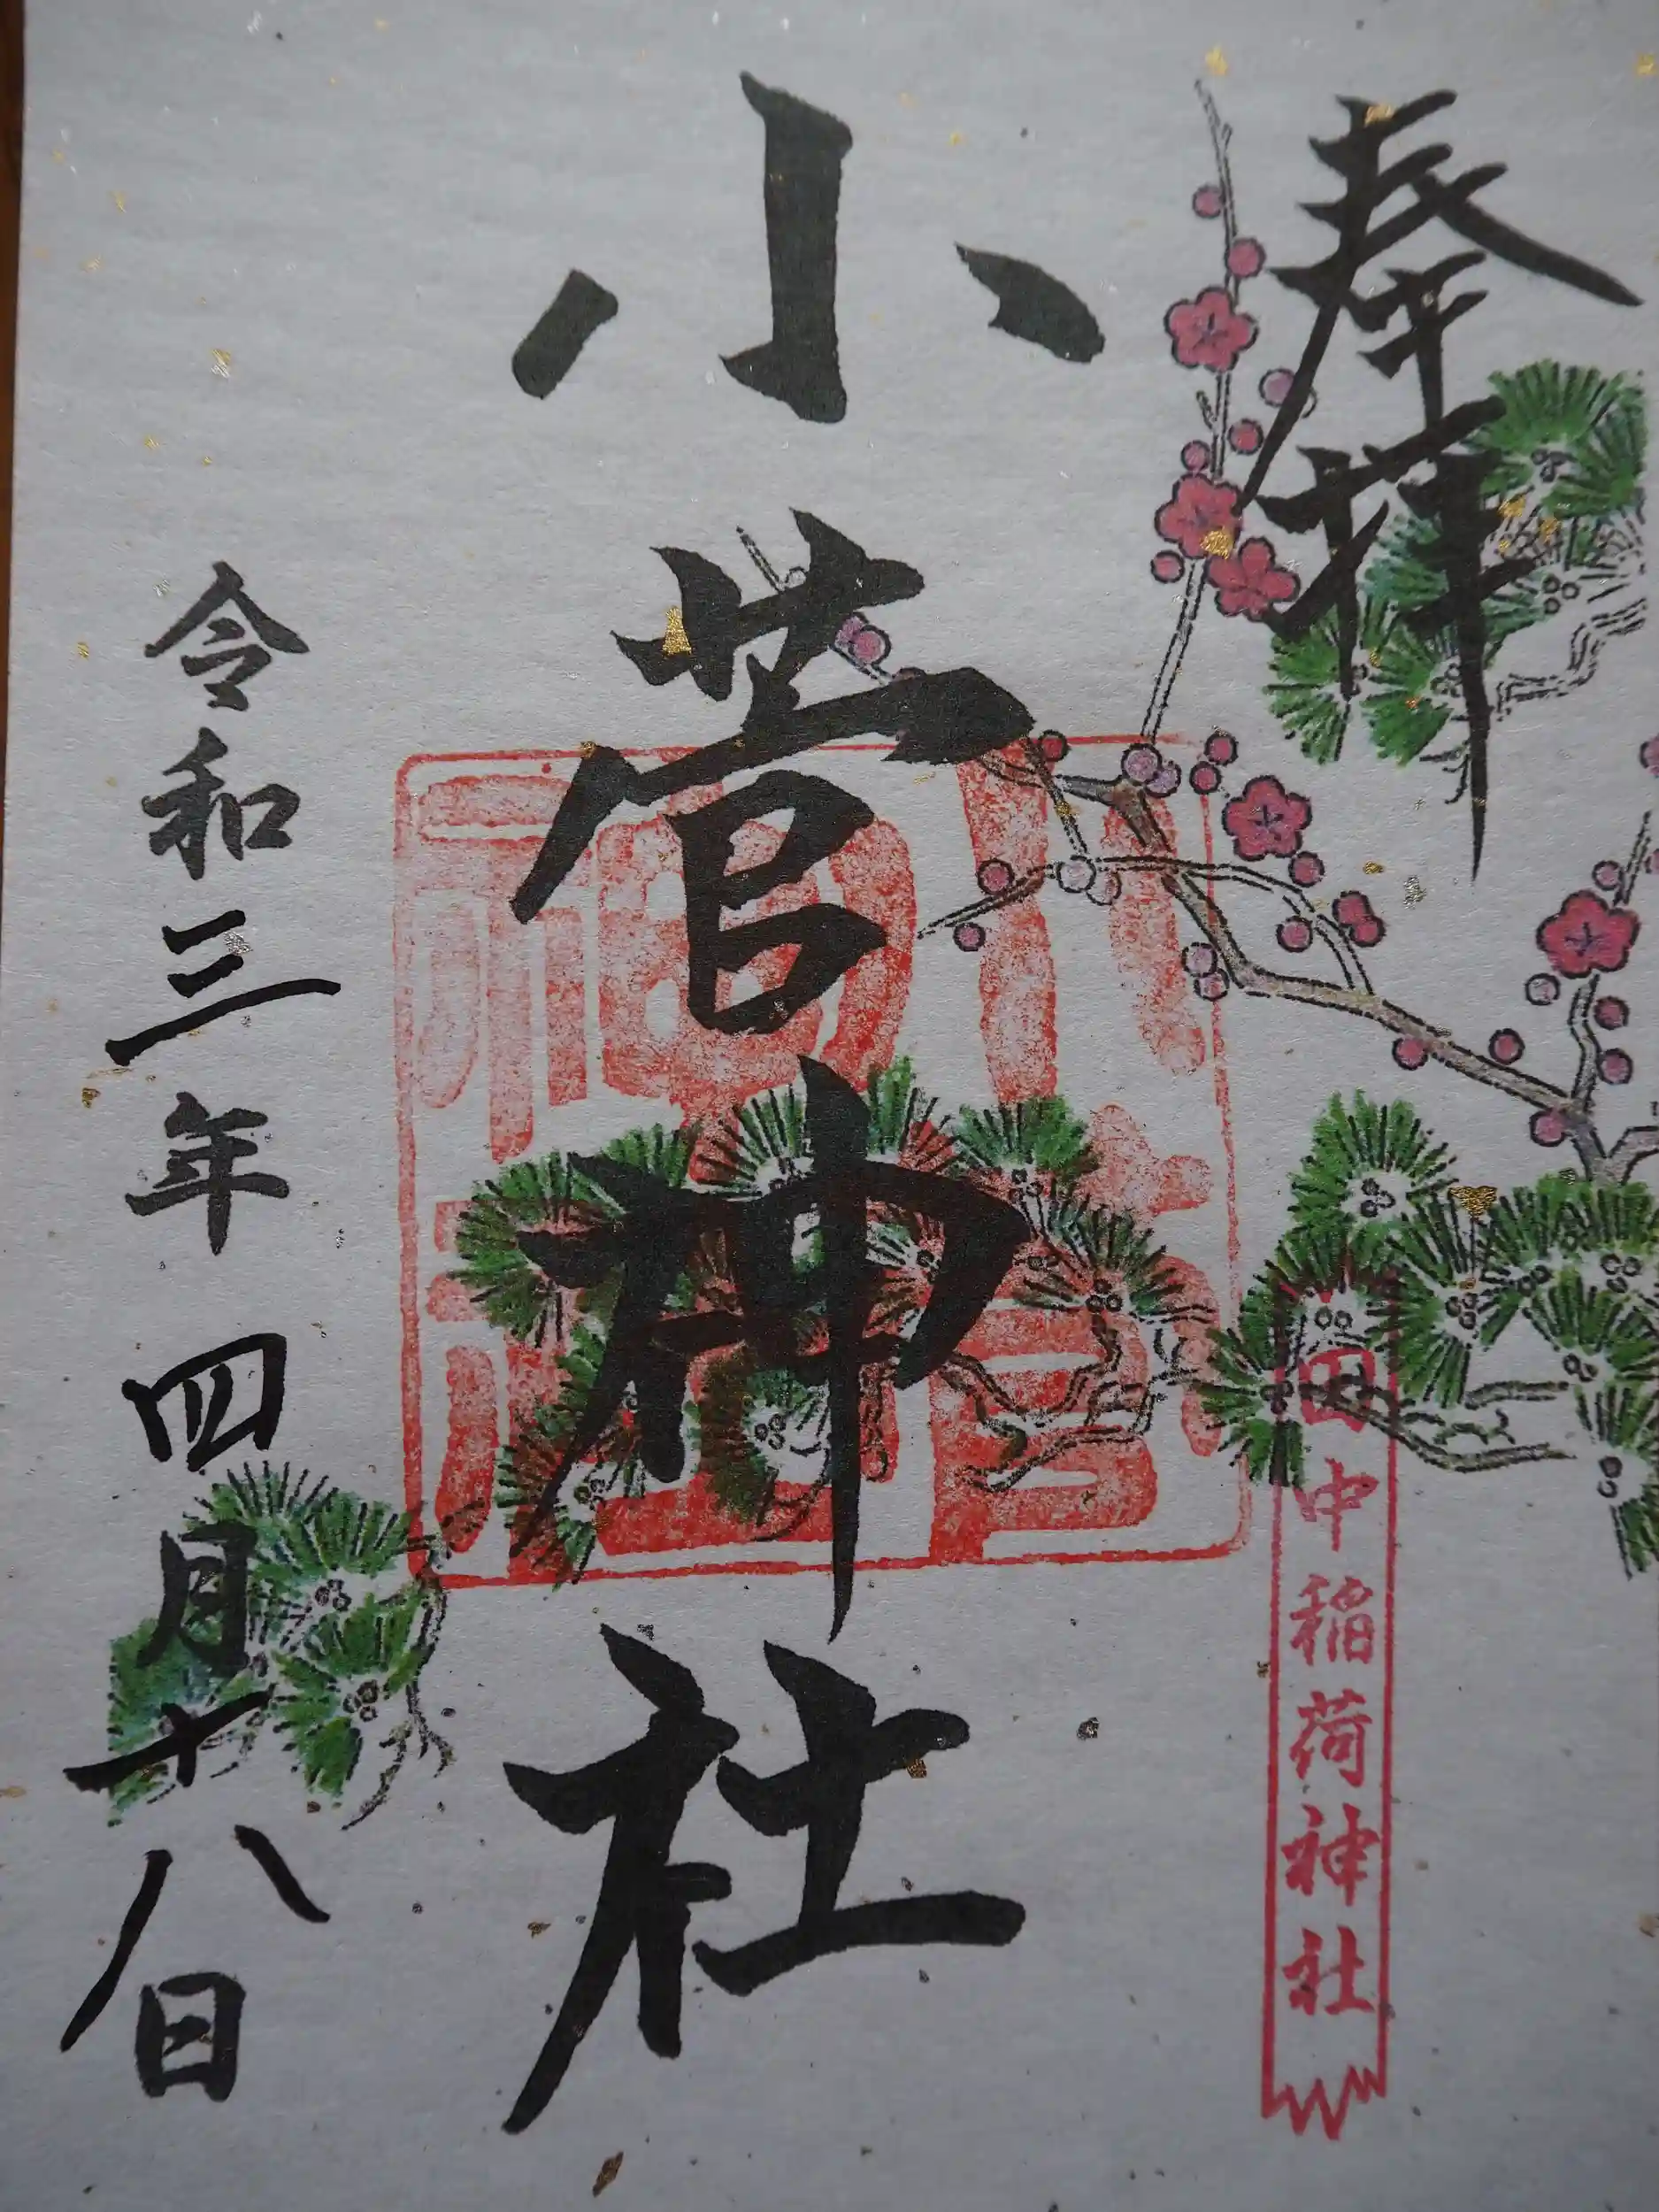 奉拝
田中稲荷神社
小菅神社
小菅神社
令和三年四月十八日